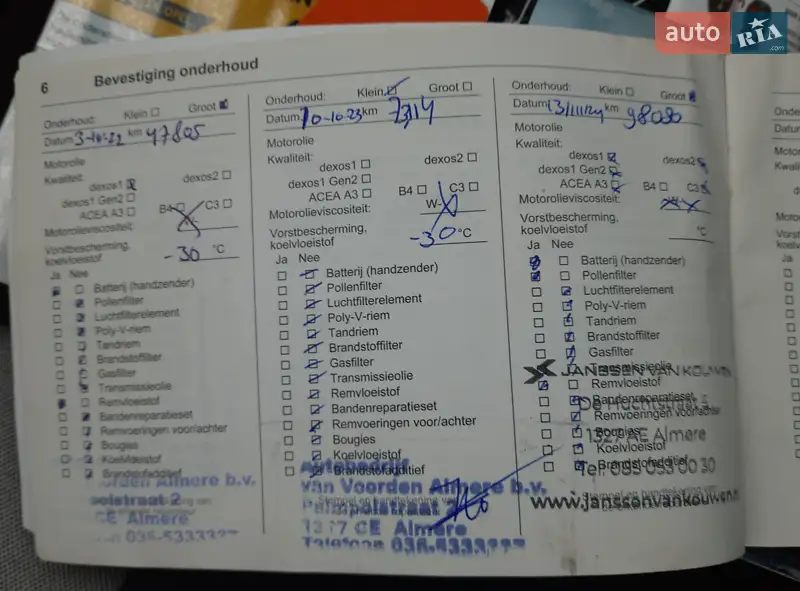 auto RIA .com
6 Bevestiging onderhoud
Onderhoud: Klein Groot
Datum 3-10-22 km 47805
Motorolie
Kwaliteit:
dexos1 dexos2
dexos1 Gen2
ACEA A3 B4 C3
Motorolieviscositeit:
Vorstbescherming,
koelvloeistof -30 °C
Ja Nee
Batterij (handzender)
Pollenfilter
Luchtfilterelement
Poly-V-riem
Tandriem
Brandstoffilter
Gasfilter
Transmissieolie
Remvloeistof
Bandenreparatieset
Remvoeringen voor/achter
Bougies
Koelvloeistof
Brandstofadditief
Voorden Almere b.v.
CE Almere
036-5333
Onderhoud: Klein Groot
Datum 10-10-23 km
Motorolie
Kwaliteit:
dexos1 dexos2
dexos1 Gen2
ACEA A3 B4 C3
Motorolieviscositeit: W-
Vorstbescherming,
koelvloeistof -30 °C
Ja Nee
Batterij (handzender)
Pollenfilter
Luchtfilterelement
Poly-V-riem
Tandriem
Brandstoffilter
Gasfilter
Transmissieolie
Remvloeistof
Bandenreparatieset
Remvoeringen voor/achter
Bougies
Koelvloeistof
Brandstofadditief
Autobedrijf
van Voorden Almere b.v.
Stempel en handtekening van
Palmpolstraat
1327 CE Almere
Telefoon 036-5333
Onderhoud: Klein Groot
Datum 13/11/24 km 98090
Motorolie
Kwaliteit:
dexos1 dexos2
dexos1 Gen2
ACEA A3 B4 C3
Motorolieviscositeit:
Vorstbescherming,
koelvloeistof °C
Ja Nee
Batterij (handzender)
Pollenfilter
Luchtfilterelement
Poly-V-riem
Tandriem
Brandstoffilter
Gasfilter
Transmissieolie
JANSSEN VAN KOUWEN
Remvloeistof
Bandenreparatieset
Remvoeringen voor/achter
Bougies
1327 AE Almere
Koelvloeistof
Brandstofadditief
Stempel en handtekening van
www.janssenvankouwen.n